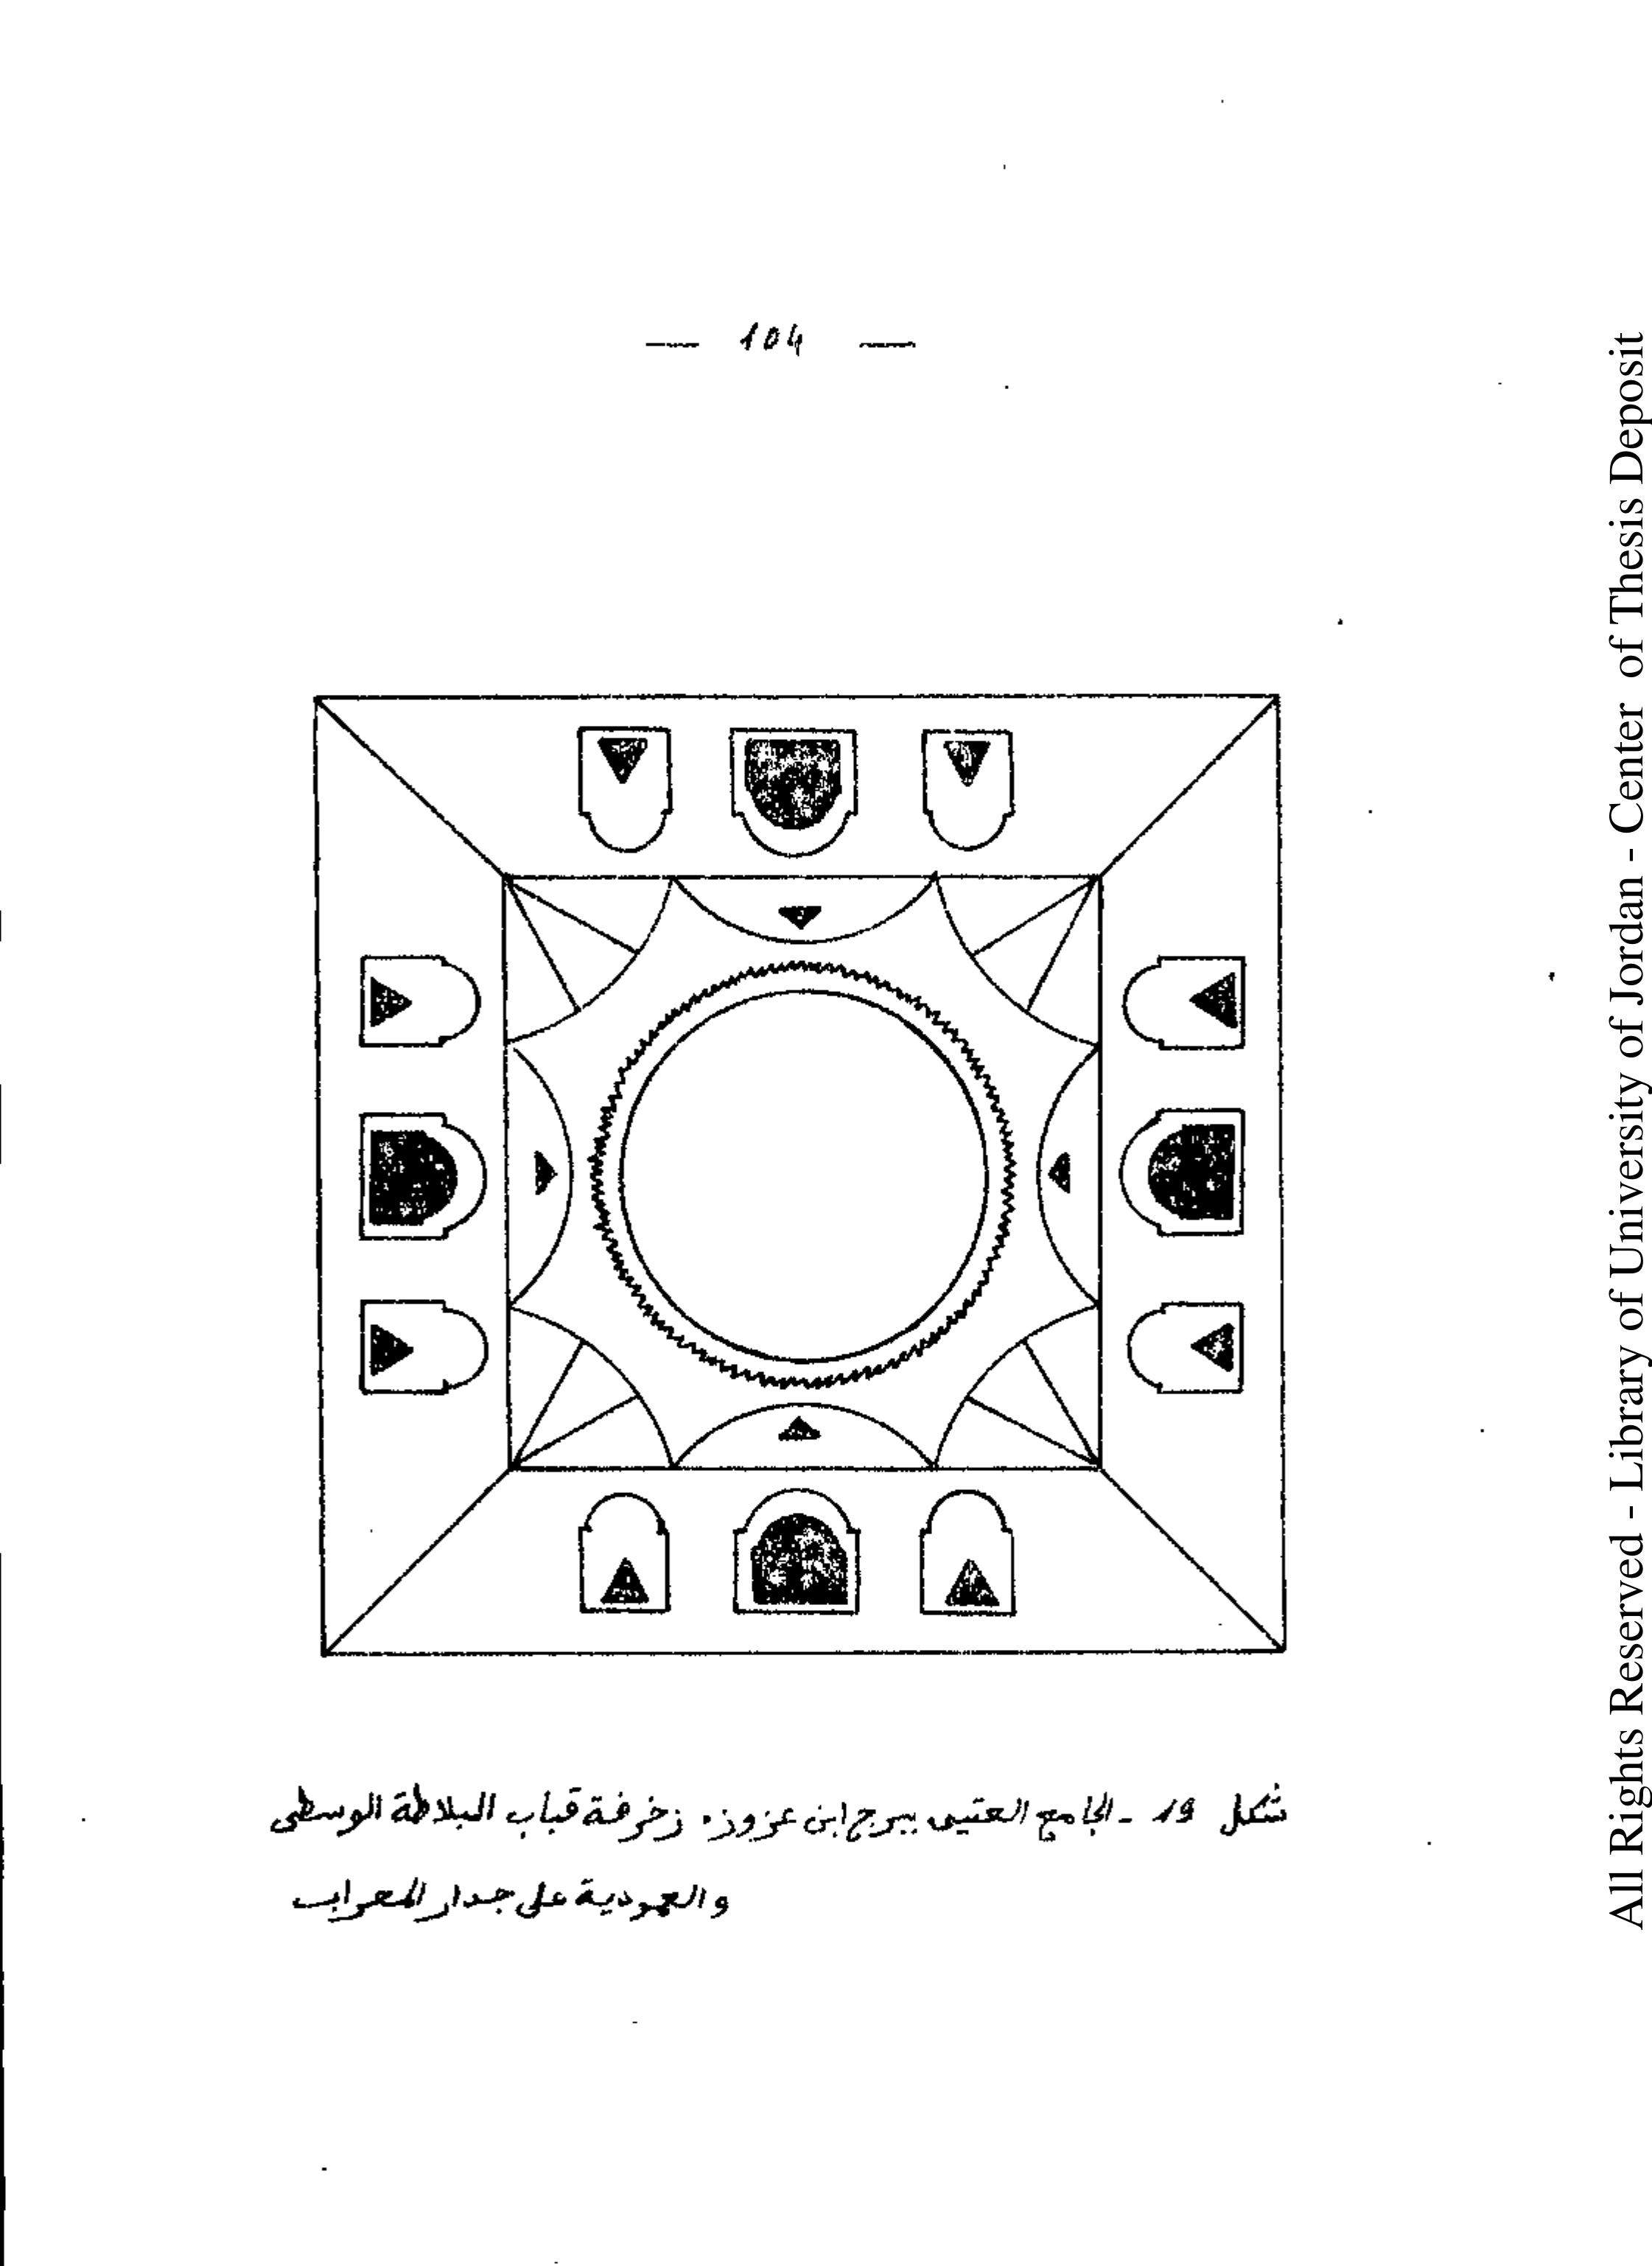 — 104 —
شكل 19 - الجامع العتيق ببرج ابن عزوز. زخرفة قباب البلاطة الوسطى
والعمودية على جدار المحراب
All Rights Reserved - Library of University of Jordan - Center of Thesis Deposit